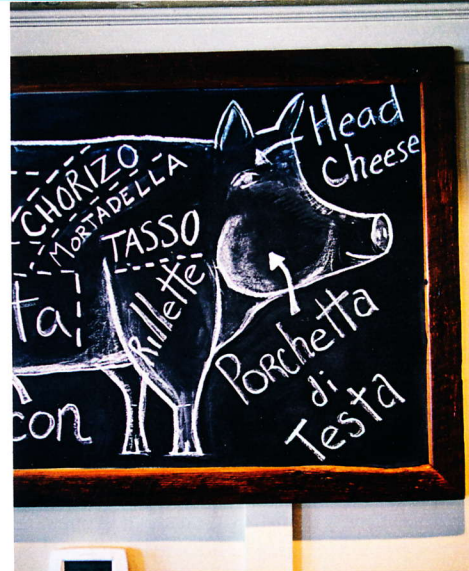 Head
Cheese
CHORIZO
MORTADELLA
TASSO
Rillette
Porchetta
di
Testa